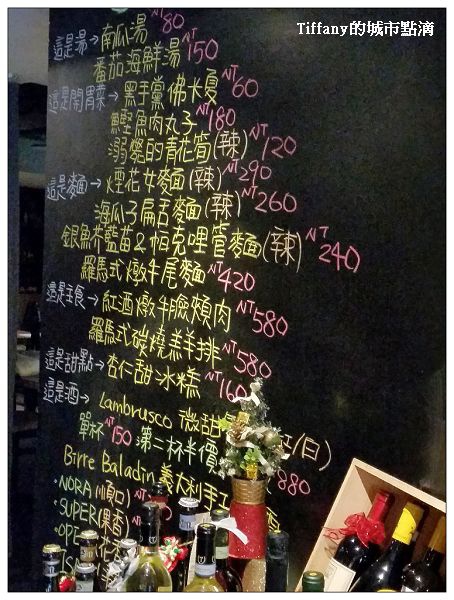 Tiffany的城市點滴
這是湯→南瓜湯 NT80
番茄海鮮湯 NT150
這是開胃菜→黑手黨佛卡夏 NT60
鰹魚肉丸子 NT180
溺斃的青花筍(辣) NT120
這是麵→煙花女麵(辣) NT290
海瓜子扁舌麵(辣) NT260
銀魚芥藍苗&帕克哩管麵(辣) NT240
羅馬式燉牛尾麵 NT420
這是主食→紅酒燉牛臉頰肉 NT580
羅馬式碳燒羊排 NT580
這是甜點→杏仁甜冰糕 NT160
這是酒→ Lambrusco 微甜 /白)
單杯 NT150 第二杯半價 880
Birre Baladin 義大利手工
·NORA(順口)
·SUPER(果香
·OPE